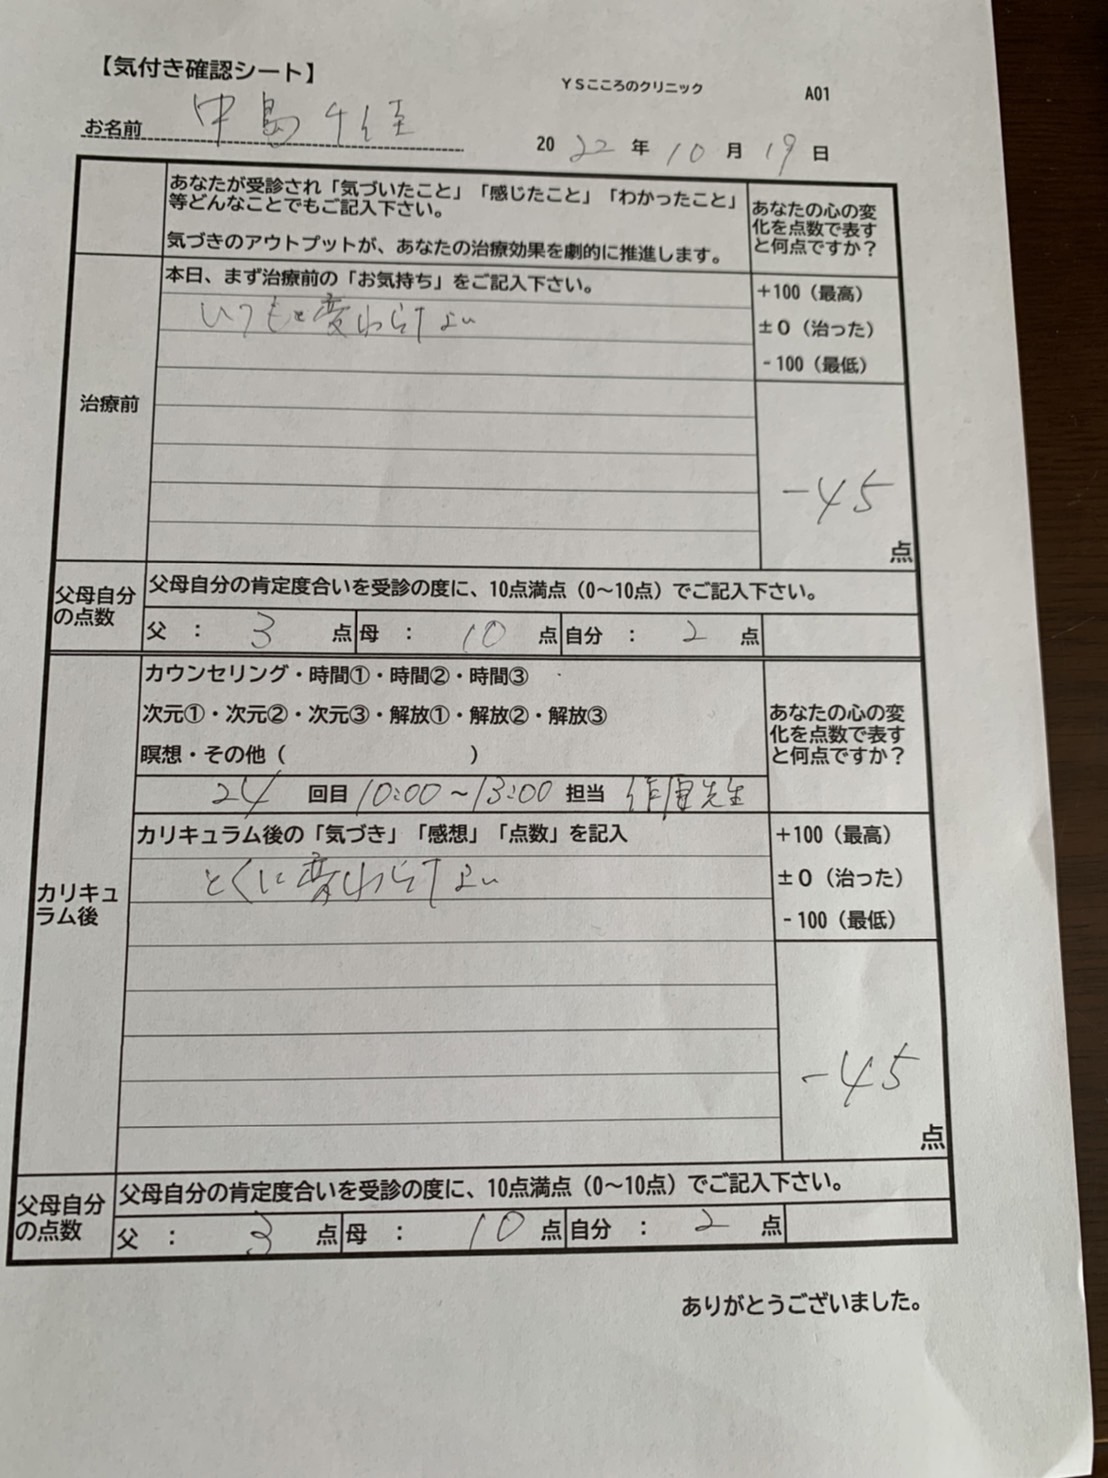 【気付き確認シート】
YSこころのクリニック
A01
お名前 中島千佳
2022年10月19日
あなたが受診され「気づいたこと」「感じたこと」「わかったこと」
等どんなことでもご記入下さい。
気づきのアウトプットが、あなたの治療効果を劇的に推進します。
あなたの心の変
化を点数で表す
と何点ですか？
治療前
本日、まず治療前の「お気持ち」をご記入下さい。
いつもと変わらない
+100（最高）
±0（治った）
-100（最低）
-45
点
父母自分
の点数
父母自分の肯定度合いを受診の度に、10点満点（0～10点）でご記入下さい。
父 ： 3 点 母 ： 10 点 自分 ： 2 点
カウンセリング・時間①・時間②・時間③
次元①・次元②・次元③・解放①・解放②・解放③
瞑想・その他（ ）
あなたの心の変
化を点数で表す
と何点ですか？
24 回目 10:00～13:00 担当 作間先生
カリキュ
ラム後
カリキュラム後の「気づき」「感想」「点数」を記入
とくに変わらない
+100（最高）
±0（治った）
-100（最低）
-45
点
父母自分
の点数
父母自分の肯定度合いを受診の度に、10点満点（0～10点）でご記入下さい。
父 ： 3 点 母 ： 10 点 自分 ： 2 点
ありがとうございました。